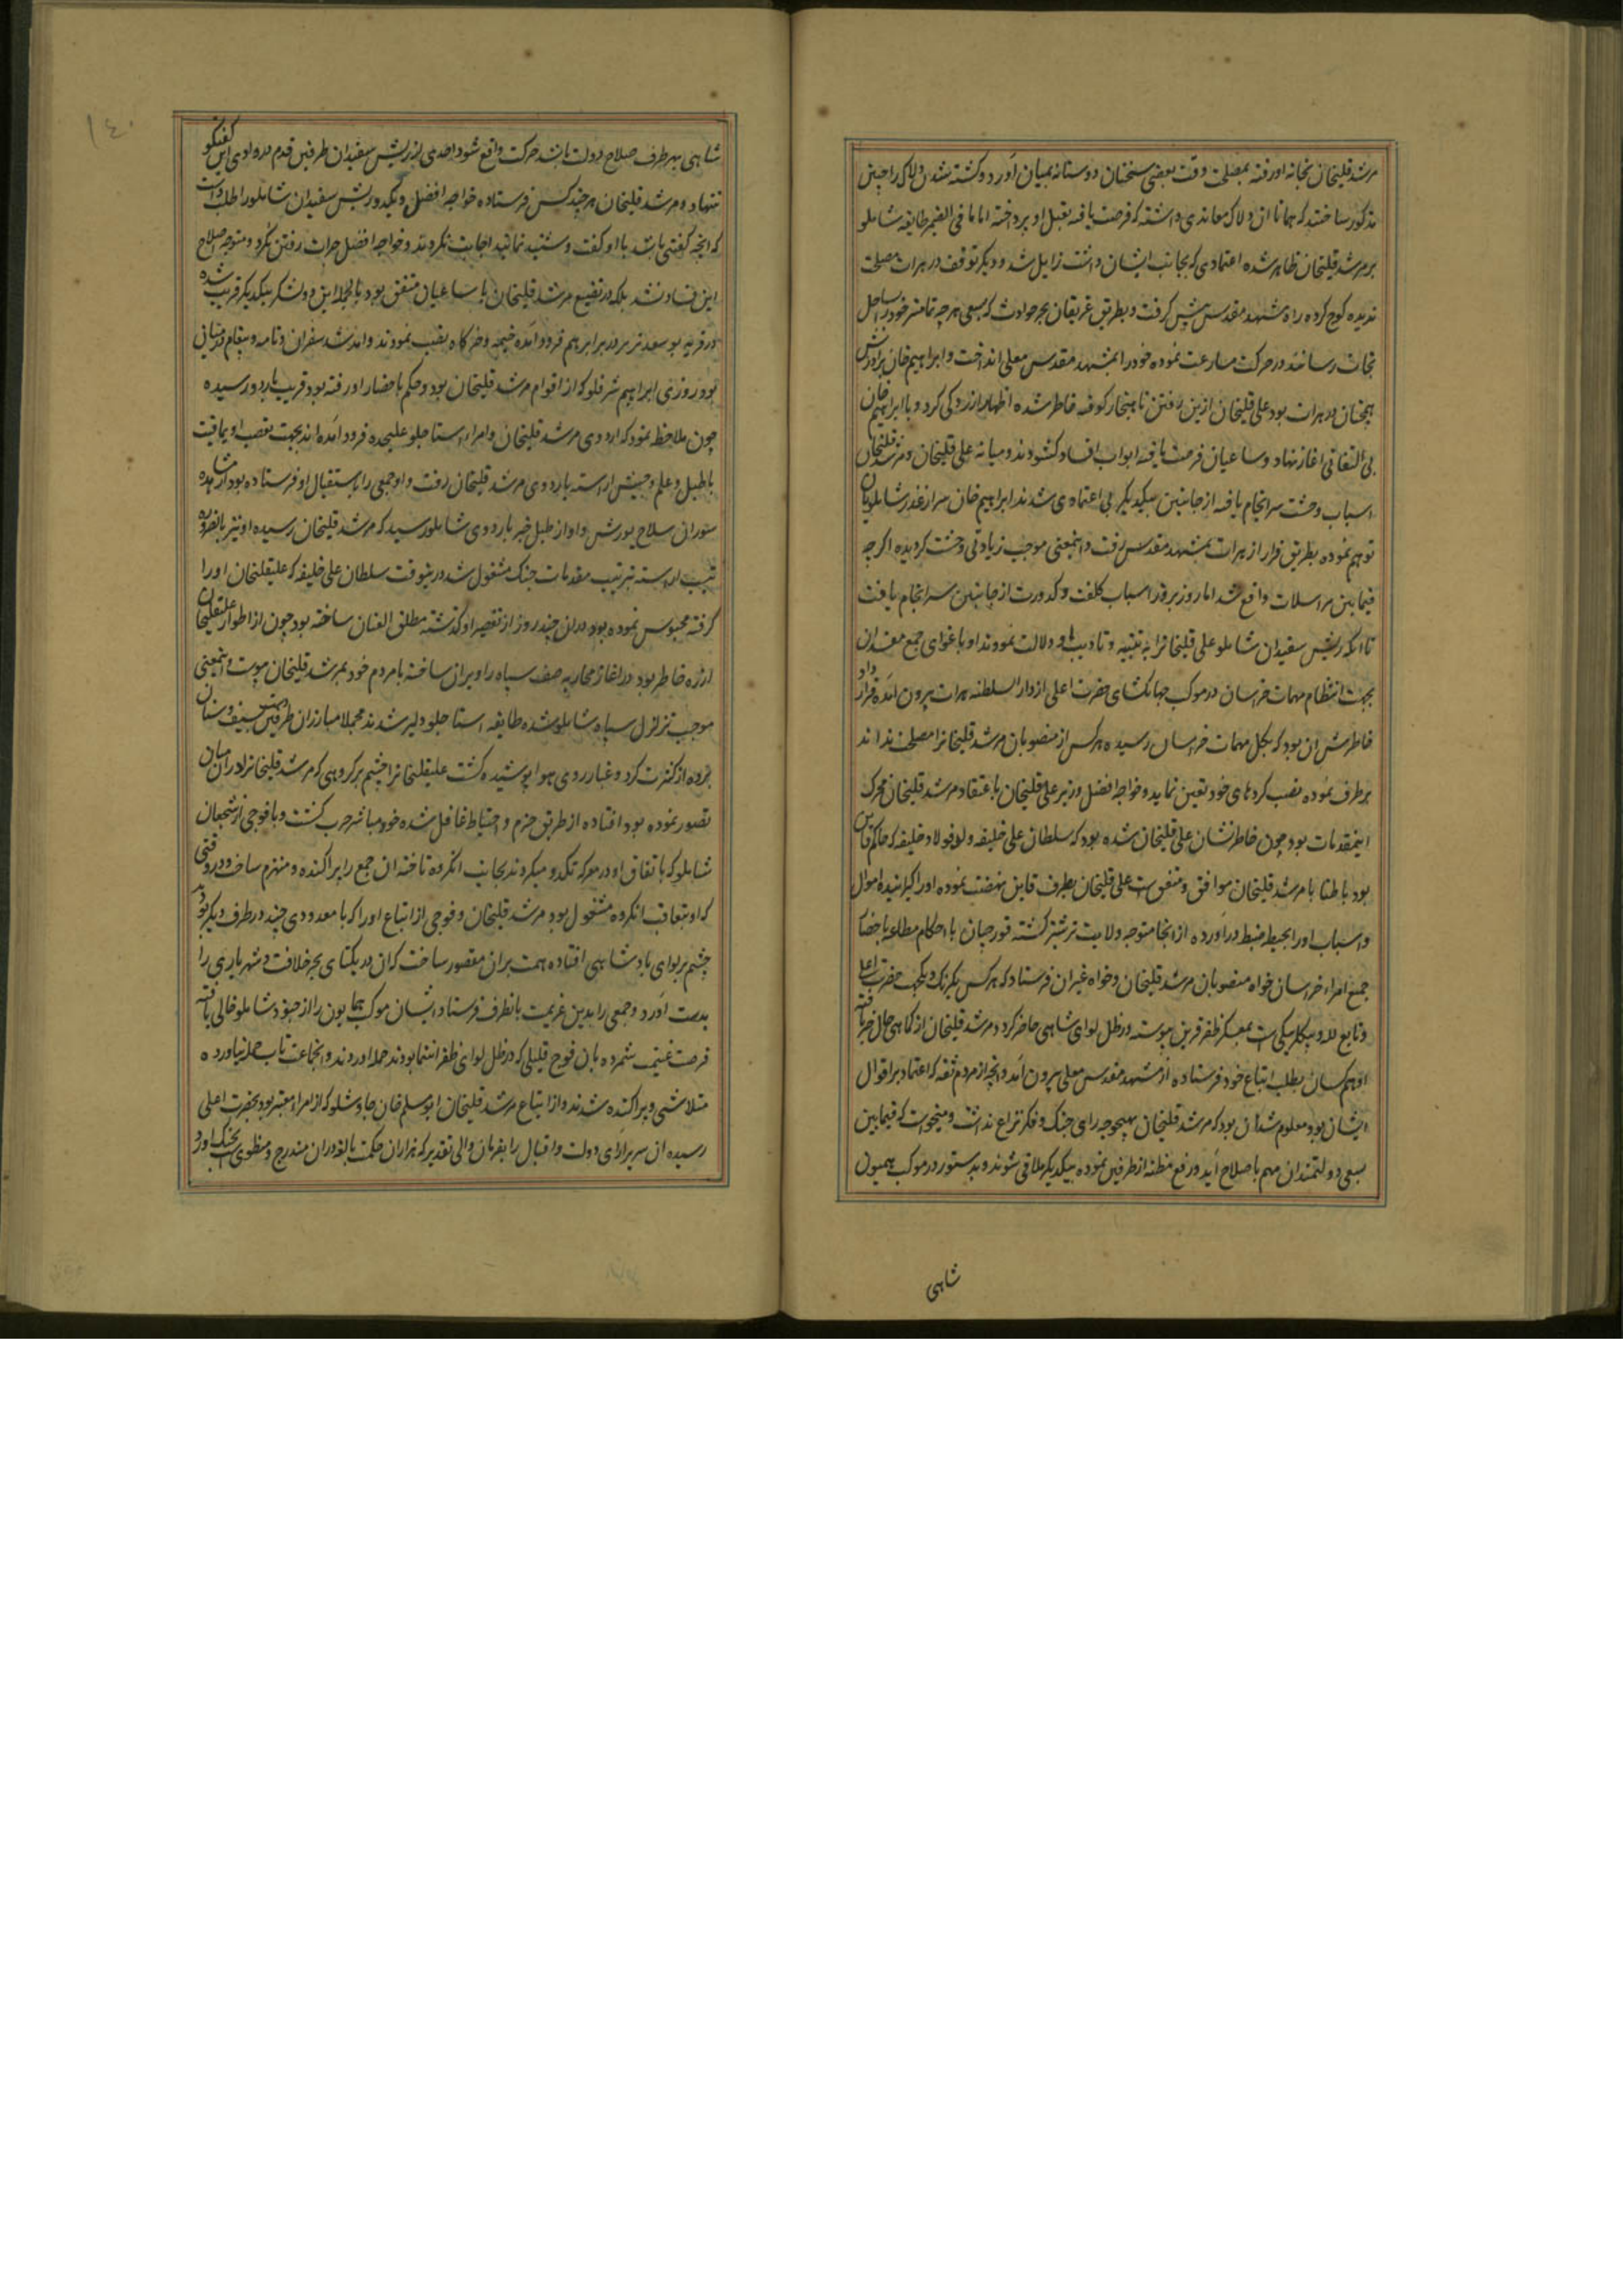 مرشد قلیخان بخانه او رفته بمصلحت وقت بعضی سخنان دوستانه بمیان آورد و کشته شدن دلاک را چنین
مذکور ساختند که همانا ازو دلاک معاندی داشته که فرصت یافته بقتل او پرداخته اما ما فی الضمیر طایفه شاملو
بر مرشد قلیخان ظاهر شده اعتمادی که بجانب ایشان داشت زایل شد و دیگر توقف در هرات مصلحت
ندیده کوچ کرده راه مشهد مقدس پیش کرفت و بطریق غریقان بحر حوادث که بسعی هر چه تمامتر خود را بساحل
نجات رسانند در حرکت مسارعت نموده خود را بمشهد مقدس معلی انداخت و ابراهیم خان برادرش
همچنان در هرات بود علی قلیخان ازین رفتن ناهنجار کوفته خاطر شده اظهار ازردکی کرد و با ابراهیم خان
بی التفاتی اغاز نهاد و ساعیان فرصت یافته ابواب افساد کشودند و میانه علی قلیخان و مرشد قلیخان
اسباب وحشت سرانجام یافته از جانبین بیکدیکر بی اعتمادی شدند ابراهیم خان نیز از غدر شاملویان
توهم نموده بطریق فرار از هرات بمشهد مقدس رفت و اینمعنی موجب زیادتی وحشت کردیده اکرچه
فیما بین مراسلات واقع شد اما روز بروز اسباب کلفت و کدورت از جانبین سرانجام یافت
تا انکه ریش سفیدان شاملو علی قلیخانرا به تنبیه و تادیب او دلالت نمودند او باغوای جمع مفسدان
بجهت انتظام مهمات خراسان در موکب جهانکشای حضرت اعلی از دار السلطنه هرات بیرون آمده قرار داد
خاطرش ان بود که بکل مهمات خراسان رسیده هر کس از منصوبان مرشد قلیخانرا مصلحت نداند
برطرف نموده نصب کردهای خود تعیین نماید و خواجه افضل وزیر علی قلیخان باعتقاد مرشد قلیخان محرک
اینمقدمات بود چون خاطرنشان علی قلیخان شده بود که سلطان علی خلیفه ولد فولاد خلیفه که حاکم قاین
بود باطنا با مرشد قلیخان موافق و متفق است علی قلیخان بطرف قاین نهضت نموده او را کیرانیده اموال
و اسباب او را بحیطه ضبط درآورده از انجا متوجه ولایت ترشیز کشته قورچیان با احکام مطاعه باحضار
جمیع امراء خراسان خواه منصوبان مرشد قلیخان و خواه غیر ان فرستاد که هر کس یکرنک و یکجهت حضرت اعلی
و تابع لله و بیکلربیکی است بمعسکر ظفر قرین پیوسته در ظل لوای شاهی حاضر کردد مرشد قلیخان از کماهی حال خبر یافته
او هم کسان بطلب اتباع خود فرستاده از مشهد مقدس معلی بیرون آمد و انچه از مردم ثقه که اعتماد بر اقوال
ایشان بود معلوم شد آن بود که مرشد قلیخان بهیچوجه رای جنک و فکر نزاع نداشت و میخواست که فیما بین
بسعی دولتمندان مهم باصلاح آید و رفع مظنه از طرفین نموده بیکدیکر ملاقی شوند و بدستور در موکب همیون
شاهی
١٤٠
شاهی بهر طرف صلاح دولت باشد حرکت واقع شود احدی از ریش سفیدان طرفین قدم در وادی این کفتکو
ننهاد و مرشد قلیخان هر چند کس فرستاده خواجه افضل و یکدو ریش سفیدان شاملو را طلب داشت
که انچه کفتنی باشد با او کفت و شنید نمایند اجابت نکردند و خواجه افضل جرات رفتن نکرد و متوجه اصلاح
این فساد نشد بلکه در تضییع مرشد قلیخان با ساعیان متفق بود بالجمله این دو لشکر بیکدیکر قریب شده
در قریه در برابر هم فرود آمده خیمه و خرکاه نصب نمودند و آمد شد سفران و نامه و پیغام در میان
بود روزی ابراهیم که از اقوام مرشد قلیخان بود و حکم باحضار او رفته بود قریب باردو رسیده
چون ملاحظه نمود که اردوی مرشد قلیخان و امراء استاجلو علیحده فرود آمده اند بجهت تعصب اویماقیت
با طبل و علم و جیش اراسته باردوی مرشد قلیخان رفت و او جمعی را باستقبال او فرستاده بود از مشاهده
سوران سلاح پوش و اواز طبل خبر باردوی شاملو رسید که مرشد قلیخان رسیده او نیز بالضروره
تیپ اراسته بترتیب مقدمات جنک مشغول شد درینوقت سلطان علی خلیفه که علیقلیخان او را
کرفته محبوس نموده بود دران چند روز از تقصیر او کذشته مطلق العنان ساخته بود چون از اطوار علیقلیخان
ازرده خاطر بود در اغاز محاربه صف سپاه را ویران ساخته با مردم خود بمرشد قلیخان پیوست و اینمعنی
موجب تزلزل سپاه شاملو شده طایفه استاجلو دلیر شدند مجملا مبارزان طرفین سیف و سنان
بوده از کثرت کرد و غبار روی هوا پوشیده کشت علیقلیخانرا چشم بر کروهی که مرشد قلیخانرا در ان میان
تصور نموده بود افتاده از طریق حزم و احتیاط غافل شده خود مباشر حرب کشت و با فوجی از شجعان
شاملو که باتفاق او در معرکه تکدو میکردند بجانب انکروه تاخته ان جمع را پراکنده و منهزم ساخت و در وقتی
که او بتعاقب انکروه مشغول بود مرشد قلیخان و فوجی از اتباع او را که با معدودی چند در طرف دیکر بود
چشم بر لوای پادشاهی افتاده همت بران مقصور ساخت که ان در یکتای بحر خلافت و شهریاری را
بدست آورد و جمعی را بدین عزیمت بانطرف فرستاد ایشان موکب همایون را از جنود شاملو خالی یافته
فرصت غنیمت شمرده بان فوج قلیلی که در ظل لوای ظفر انتما بودند حمله اوردند و انجماعت تاب حمله نیاورده
متلاشی و پراکنده شدند و از اتباع مرشد قلیخان ابو مسلم خان چاوشلو که از امراء معتبر بود بحضرت اعلی
رسیده ان سریر ارای دولت و اقبال را بفرمان والی تقدیر که هزاران حکمت بالغه دران مندرج و منطوی است بچنک آورد